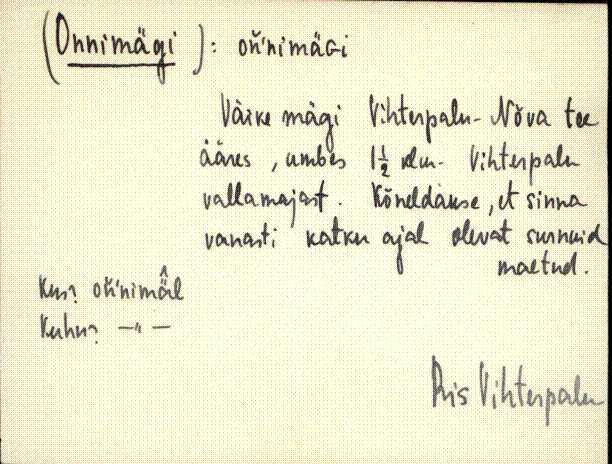 (Onnimägi): oń'nimäGi
Väike mägi Vihterpalu-Nõva tee
ääres, umbes 1½ klm. Vihterpalu
vallamajast. Kõneldakse, et sinna
vanasti katku ajal olevat surnuid
maetud.
Kus? oń'nimä̂l
Kuhu? —"—
Ris Vihterpalu